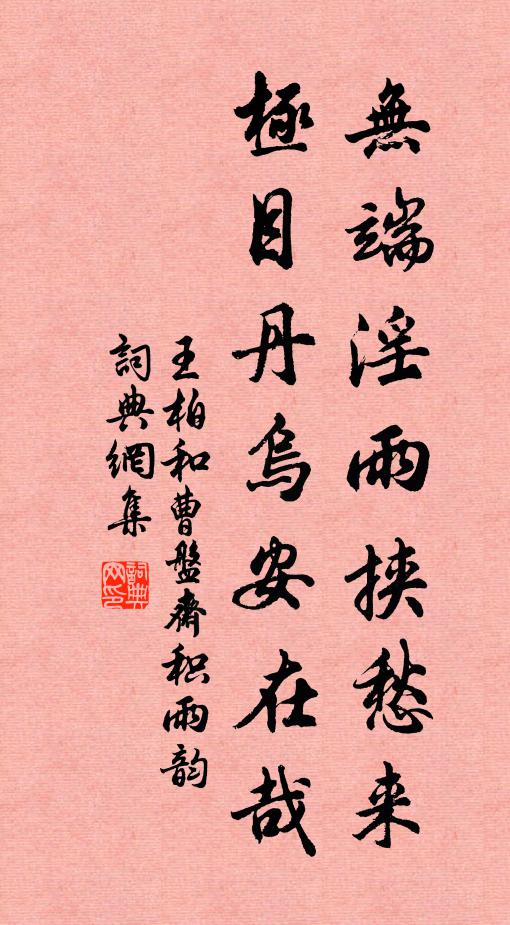 無端淫雨挾愁来
極目丹烏安在哉
王柏和曹盤齋积雨韵
詞典網集
詞典网印